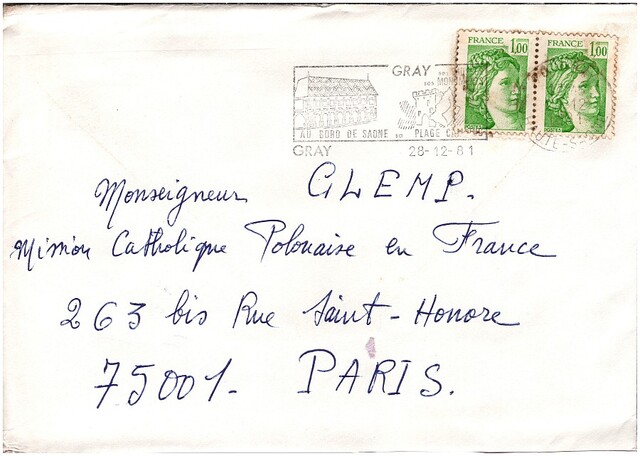 FRANCE 1,00 FRANCE 1,00
GRAY
AU BORD DE SAONE PLAGE
GRAY 28-12-81
Monseigneur GLEMP.
Mission Catholique Polonaise en France
263 bis Rue Saint-Honore
75001- PARIS.